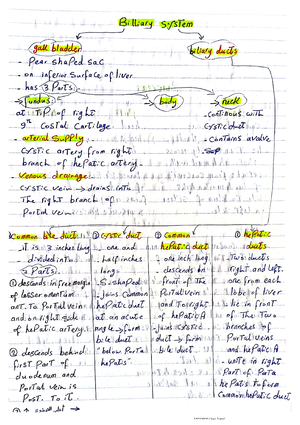 Billiary system
gall bladder
biliary ducts
- Pear shaped sac
- on inferior surface of liver
- has 3 Parts:
→ fundus
→ body
→ neck
at tip of right
9th costal Cartilage
- continous with
cystic duct
- Contains avalve
- arterial supply:
cystic artery from right
branch of hepatic artery.
- venous drainage:
cystic vein → drains into
The right branch of
Portal vein.
Common bile duct
- it is 3 inches long
- divided into
3 Parts:
① descends in free margin
of lesser omentum
ant. to Portal vein
and on right side
of hepatic artery.
② descends behind
first Part of
duodenum and
Portal vein is
Post. to it
② cystic duct
- one and
half inches
long.
- S. shaped
- joins Common
hepatic duct
at an acute
angle → form
bile duct
"below Porta
hepatis"
② Common
hepatic duct
- one inch long
- descends in
front of the
Portal vein
and To right
of hepatic A
- joins cystic
duct → form
bile duct.
① hepatic
ducts
- Two ducts
right and left.
- one from each
lobe of liver
- lie in front
of The Two
branches of
Portal veins
and hepatic A
- unite in right
Part of Porta
hepatis To form
Common hepatic duct